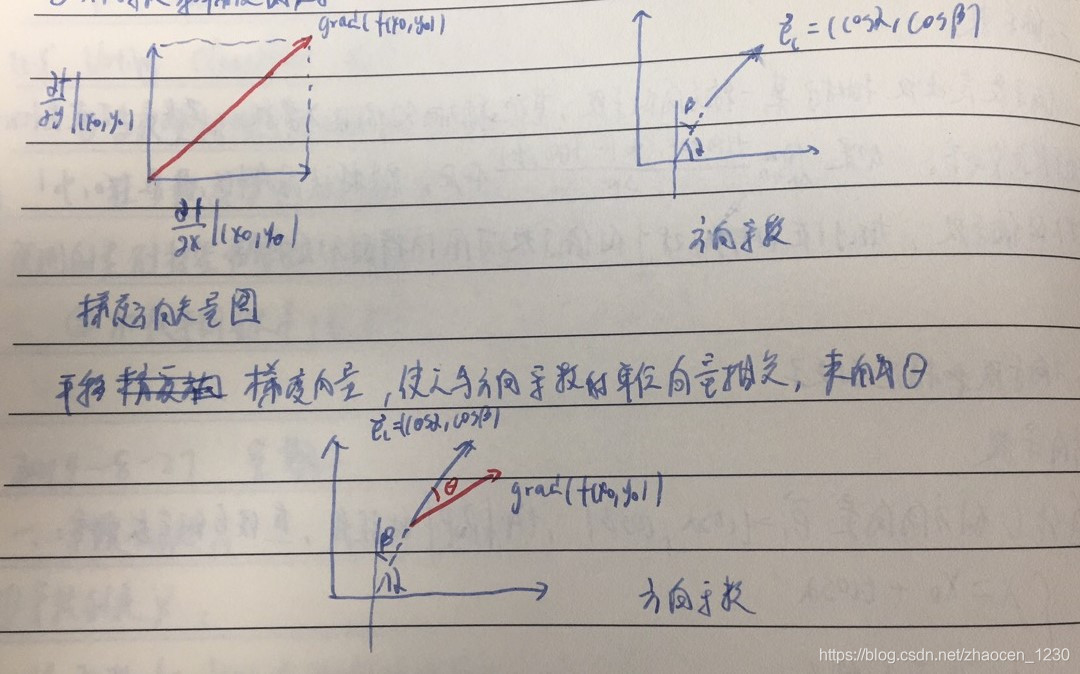 grad f(x0,y0)
∂f/∂y|(x0,y0)
∂f/∂x|(x0,y0)
e⃗_l=(cosα,cosβ)
β
α
方向导数
梯度方向矢量图
平移 梯度向量,使之与方向导数的单位向量相交,夹角θ
e⃗_l=(cosα,cosβ)
θ
grad f(x0,y0)
β
α
方向导数
https://blog.csdn.net/zhaocen_1230